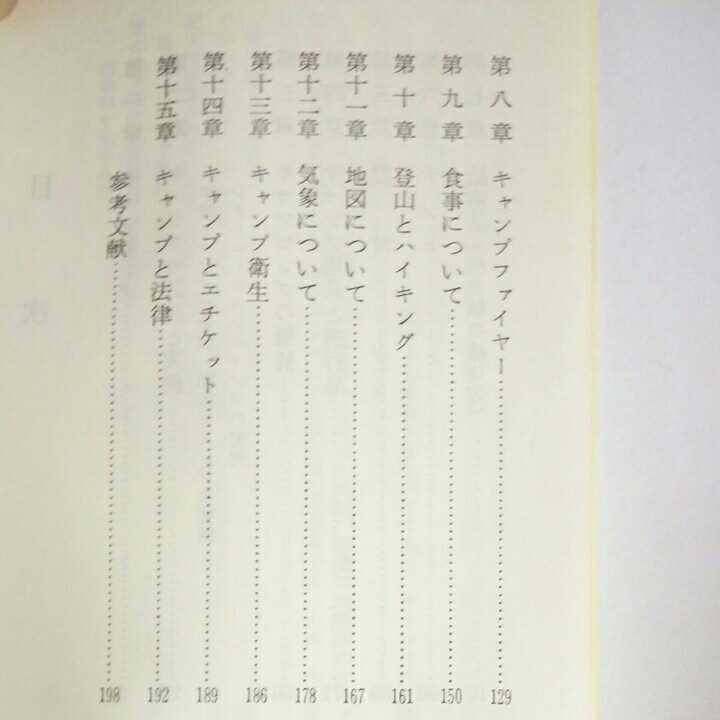 第八章 キャンプファイヤー……………129
第九章 食事について……………150
第十章 登山とハイキング……………161
第十一章 地図について……………167
第十二章 気象について……………178
第十三章 キャンプ衛生……………186
第十四章 キャンプとエチケット……………189
第十五章 キャンプと法律……………192
参考文献……………198